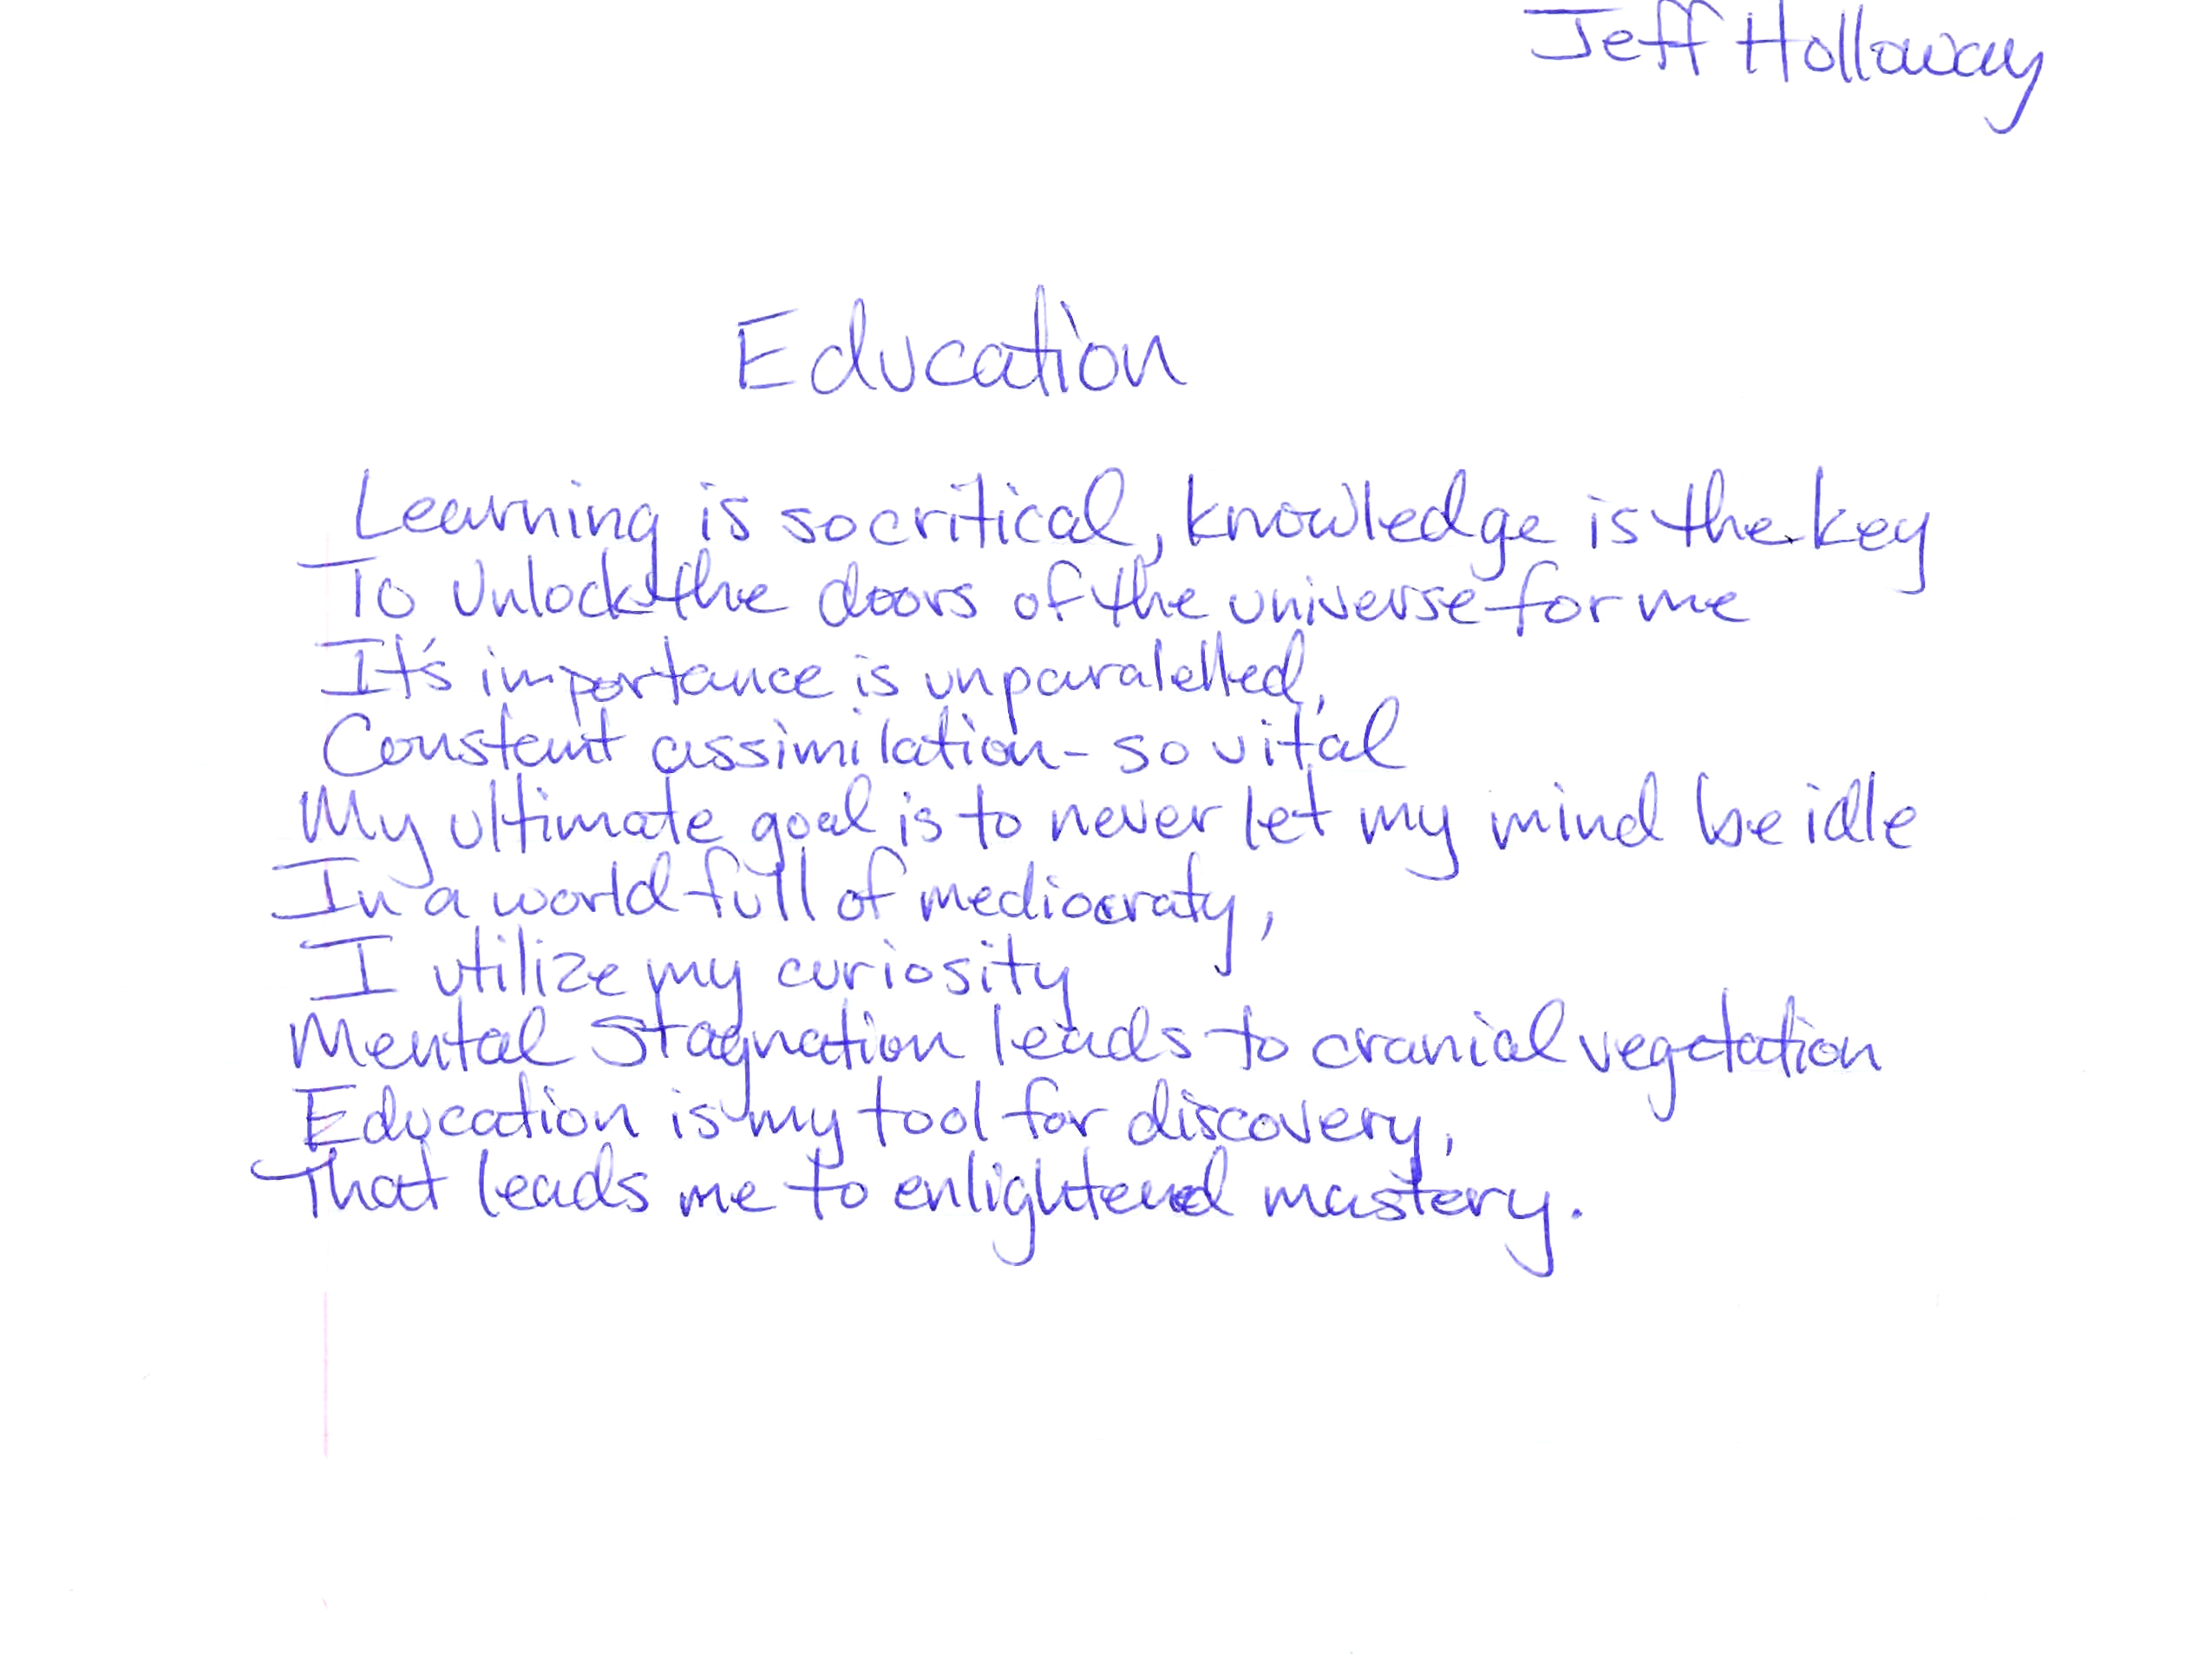 Jeff Holloway
Education
Learning is so critical, knowledge is the key
To Unlock the doors of the universe for me
It's importance is unparalelled,
Constent assimilation - so vital
My ultimate goal is to never let my mind be idle
In a world full of mediocraty,
I utilize my curiosity
Mental Stagnation leads to cranial vegetation
Education is my tool for discovery,
That leads me to enlightened mastery.